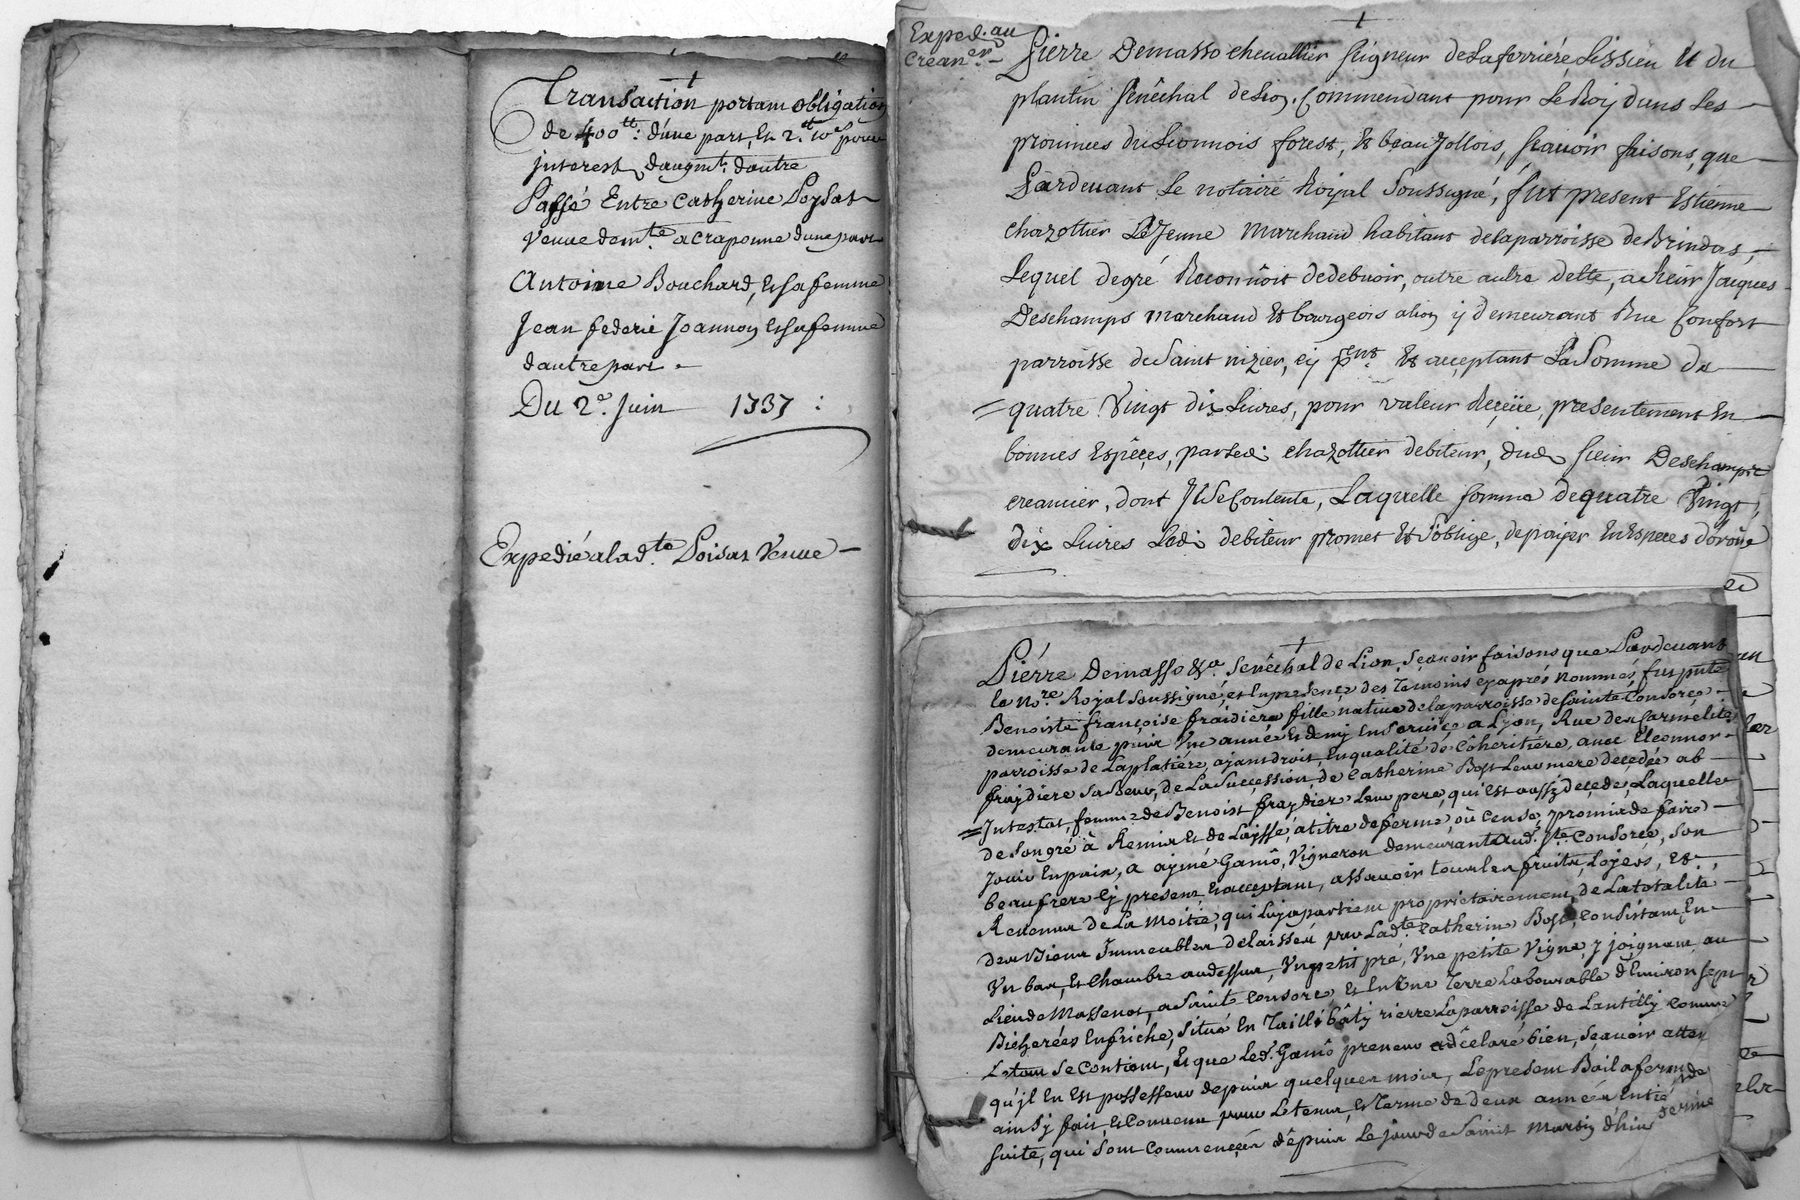 Transaction portant obligation
de 400tt: d'une part, Et 2.tt 10s pour
jnterest, d'augmt. d'autre
Passé Entre Catherine Poysat
Veuue demte. a Craponne d'une part
Antoine Bouchard, Et sa femme
Jean federic Joannon Et sa femme
d'autre part.
Du 2e. Juin 1737 :
Expedié a lad.te Poisat Veuue
Exped. au
Crean.er
Pierre Demasso cheuallier seigneur de La ferriere, Lissieu Et du
plantin senêchal de Lion. Commendant pour Le Roÿ dans Les
prouinces du Lionnois forest, Et beaujollois, scauoir faisons, que
Pardeuant Le notaire Roÿal soussigné, fut present Estienne
chazottier Le Jeune Marchand habitant de la parroisse de Brindas,
Lequel de gré Reconnôit de debuoir, outre autre debte, a sieur Jacques
Deschamps marchand Et bourgeois a lion ÿ demeurant Rue Confort
parroisse de Saint nizier, cÿ pnt. Et acceptant La somme de
quatre Vingt dix Liures, pour valeur Reçeüe, presentement En
bonnes Espêces, par led: chazottier debiteur, dud: sieur Deschamps
creancier, dont Il se contente, Laquelle somme de quatre Vingt
dix Liures Led: debiteur promet Et s'oblige, de païer En Especes
Piérre Demasso &a. Senêchal de Lion, scauoir faisons que Pardeuant
le nore. Royal soussigné, et En presence des Temoins cy aprés nommés, fut pnte
Benoiste françoise fraidiere fille natiue de la parroisse de sainte Consorce
demeurante puis Vne année Et demy En seruice a Lyon, Rue des Carmelites
parroisse de Laplatiere, ayant droit, En qualité de côheritiere, auec Eleonnor
fraÿdiere sa soeur, de La succession, de Catherine Bost Leur mere decedée ab
Intestat, femme de Benoist fraÿdier Leur pere, qui est aussÿ decedé, Laquelle
de son gré à Remis Et de Laissé, a titre de ferme, où cense, & promis de faire
Jouir En paix, a aÿmé Gamô, Vigneron demeurant aud. Ste. Consorce, son
beaufrere cÿ present, Et acceptant, assauoir tous les fruits, Loÿers, Et
Reuenus de La Moitié, qui Luÿ apartient proprietairement, de La totalité
des Biens Immeubles delaissés par Lad.te Catherine Bost, consistant En
Vn bas, Et Chambre au dessus, Vn petit pré, Vne petite Vigne, y joignant, au
Lieu de Massenot, a Sainte Consorce Et En Vne Terre Labourable d'Enuiron sept
Bicherées En friche, situé En Tailli bâtÿ riere La parroisse de Lantillÿ comme
Le tout se Contient, Et que Led. Gamô preneur a dêclaré bien, scauoir atten
qu'jl En Est possesseur depuis quelques mois, Le present Bail a ferme
ainsÿ fait, Et Conuenu pour Le temps, Et Terme de deux années Entiè
suite, qui sont Commencées dépuis Le jour de Saint Martin d'hiuer